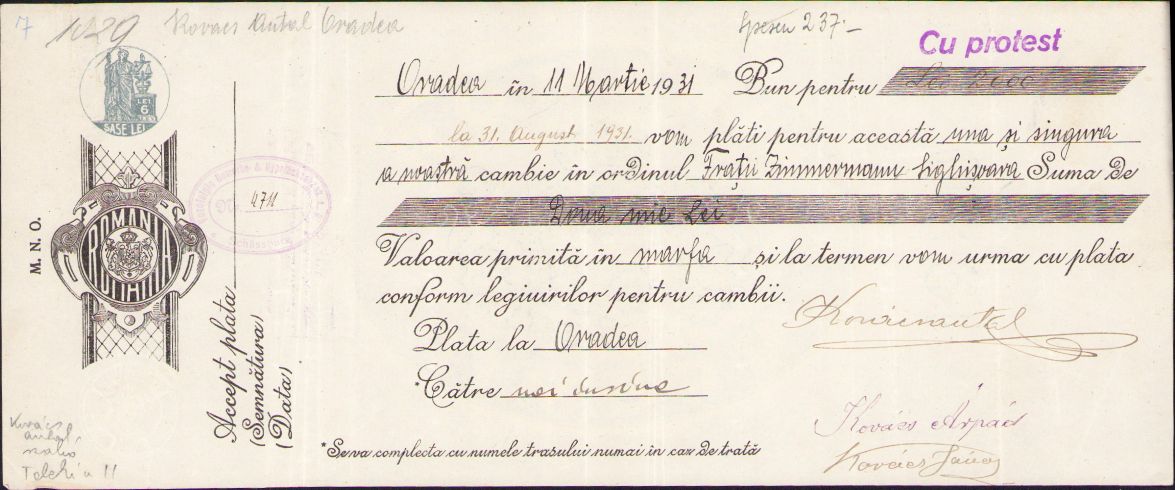 7
1029 Kovacs Antal Oradea
spesen 237.-
Cu protest
LEI
6
SASE LEI
Oradea în 11 Martie 1931 Bun pentru Lei 2000
la 31. August 1931. vom plăti pentru această una și singura
a noastră cambie în ordinul Frații Zimmermann Sighișoara Suma de
Doua mie Lei
Valoarea primită în marfa și la termen vom urma cu plata
conform legiuirilor pentru cambii.
Plata la Oradea
*Către noi
*Se va complecta cu numele trasului numai în caz de tratā
M. N. O.
ROMANIA
Accept plata
(Semnătura)
(Data)
4711
Schässburg
Kovács Antal
Kovács Árpád
Kovács János
Kovács
Antal
Teleki u 11